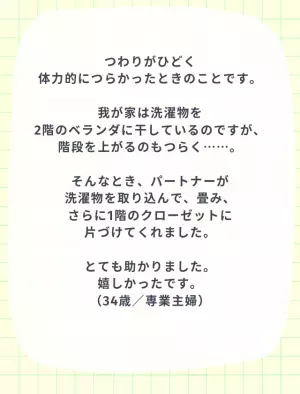 つわりがひどく
体力的につらかったときのことです。
我が家は洗濯物を
2階のベランダに干しているのですが、
階段を上がるのもつらく……。
そんなとき、パートナーが
洗濯物を取り込んで、畳み、
さらに1階のクローゼットに
片づけてくれました。
とても助かりました。
嬉しかったです。
（34歳／専業主婦）